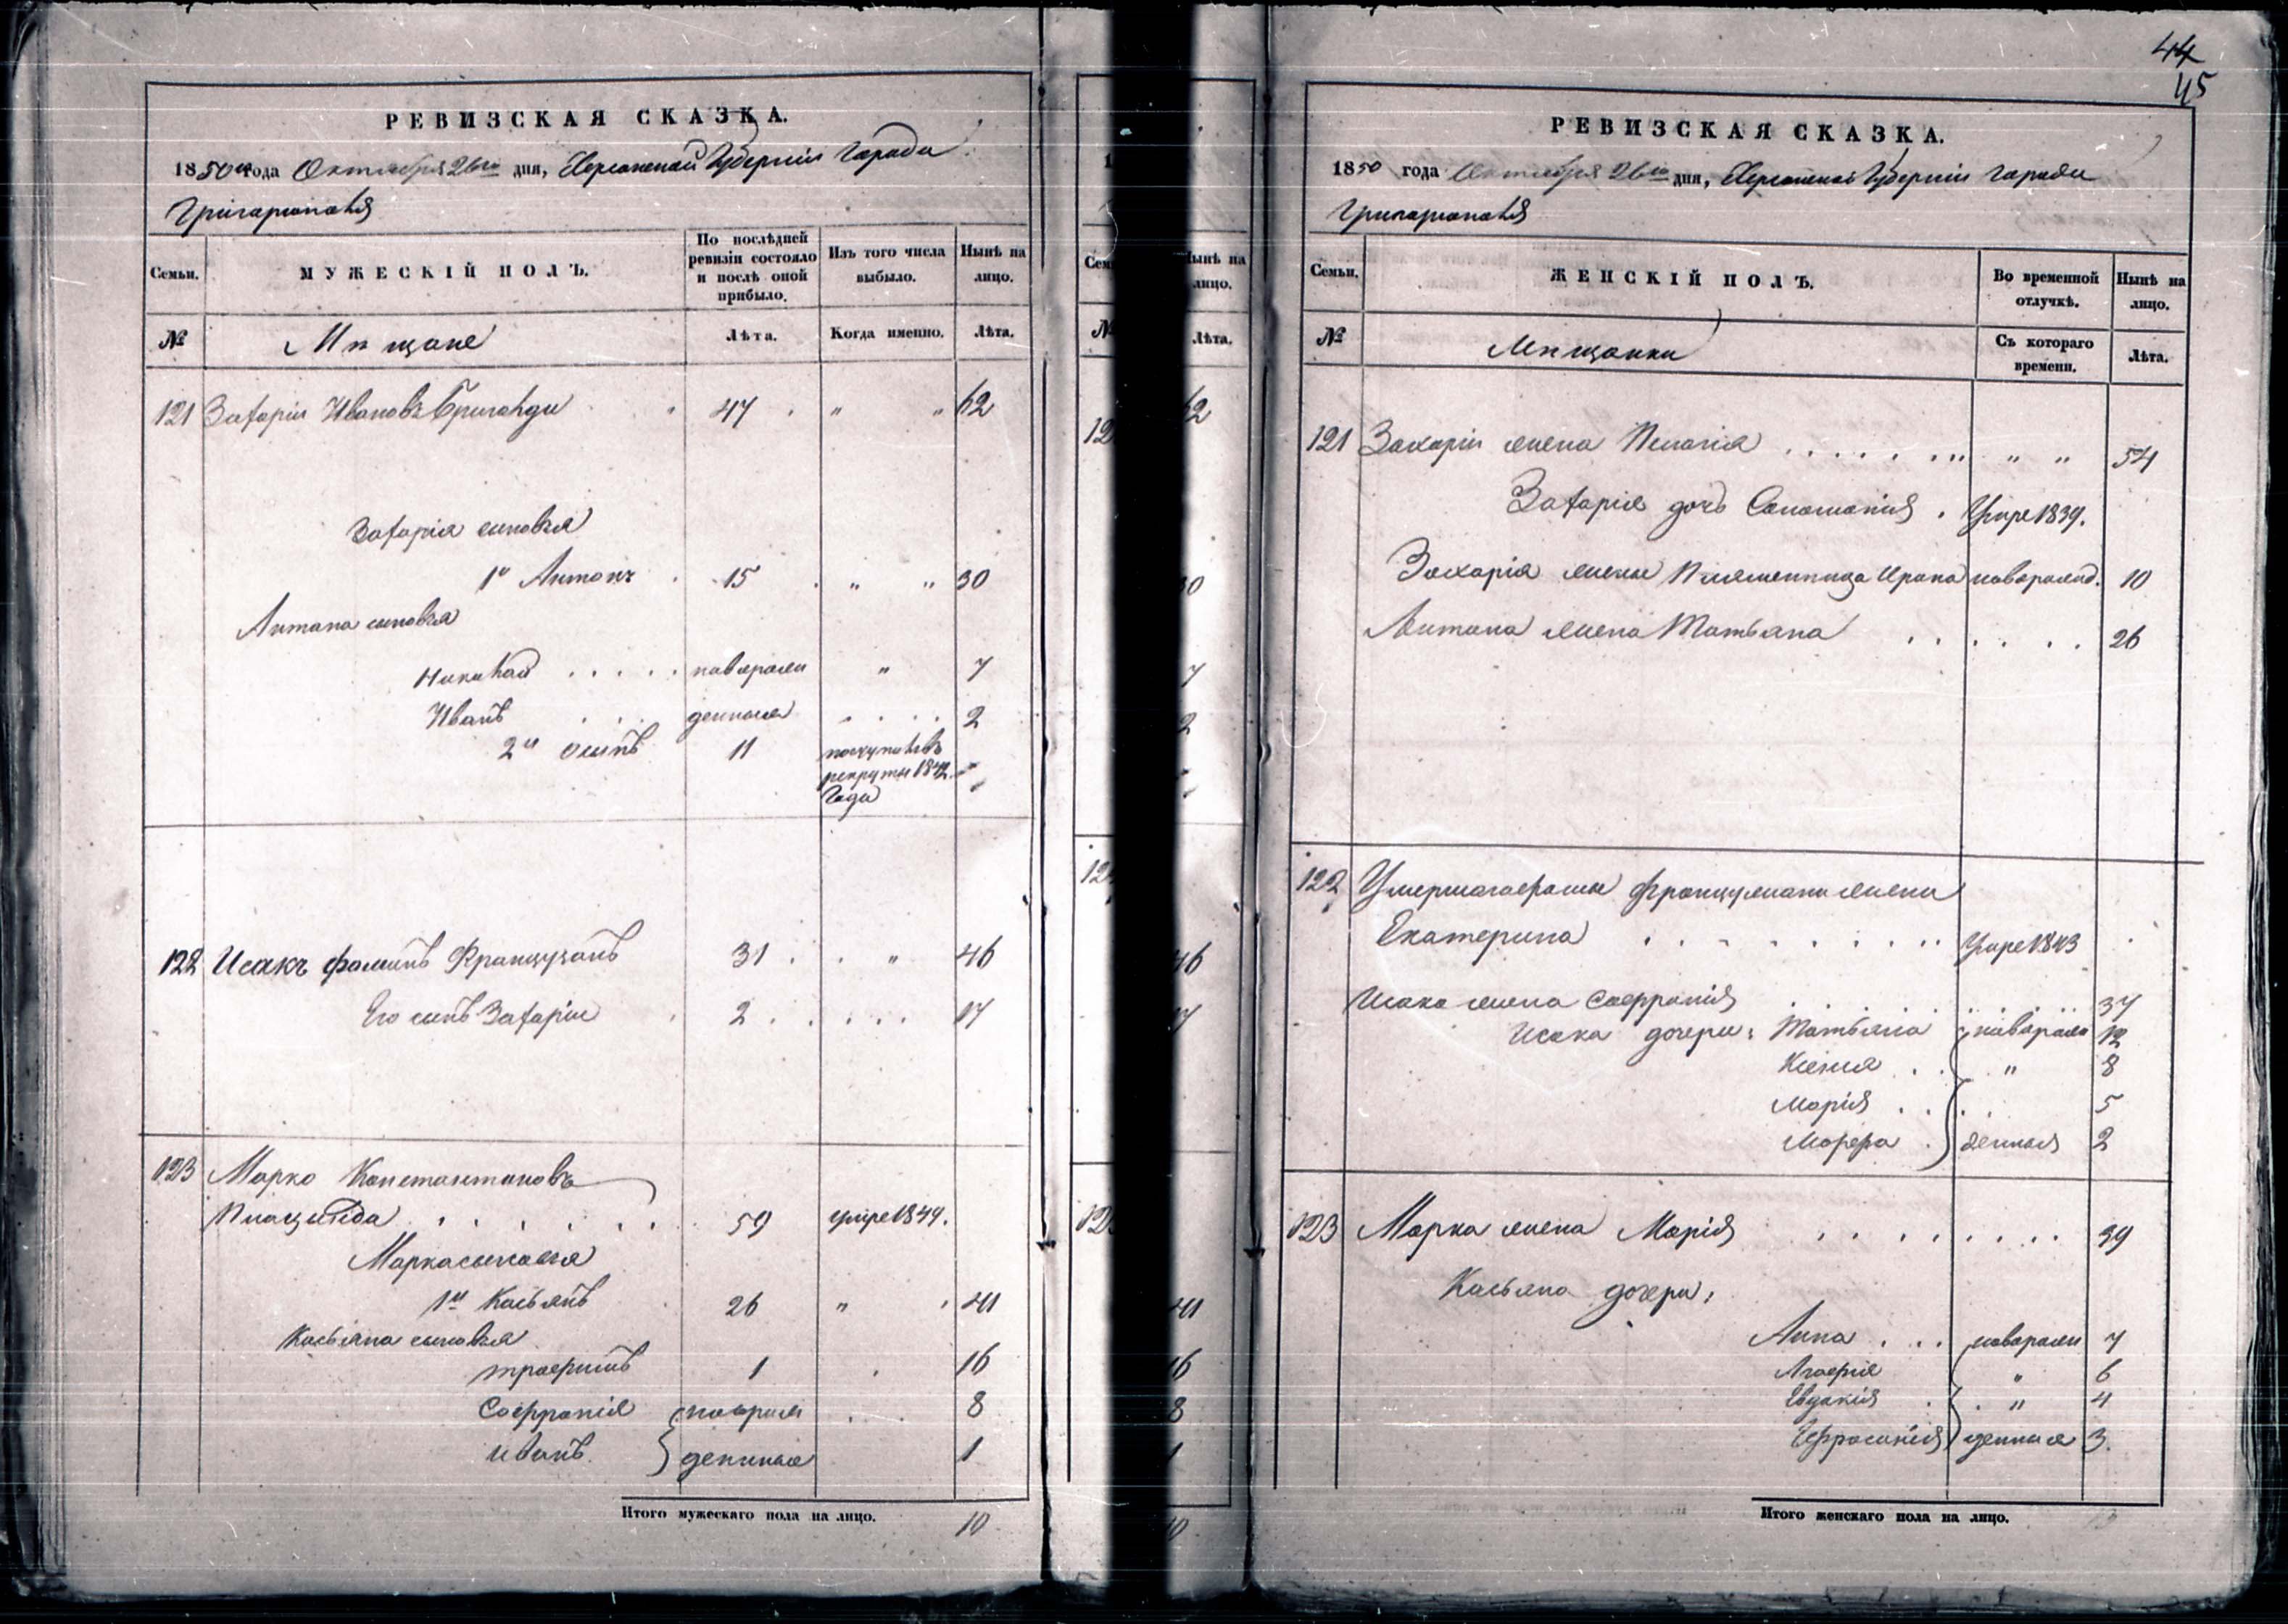 44
45
РЕВИЗСКАЯ СКАЗКА.
1850го года Октября 26го дня, Херсонской Губерніи Города
Григоріополя
Семьи.
МУЖЕСКІЙ ПОЛЪ.
По послѣдней ревизіи состояло и послѣ оной прибыло.
Изъ того числа выбыло.
Нынѣ на лицо.
№
Мѣщане
Лѣта.
Когда именно.
Лѣта.
121 Захарій Ивановъ 47 " " 62
Захарія сыновья
1й Антонъ 15 " " 30
Антона сыновья
Николай новорож " 7
Иванъ денныя 2
2й Осипъ 11 поступилъ въ
рекруты 1842
года
122 Исакъ Фоминъ Французанъ 31 " 46
Его сынъ Захарій 2 17
123 Марко Константиновъ
Плацында 59 умре 1849.
Марка сыновья
1й Касьянъ 26 " 41
Касьяна сыновья
Трофимъ 1 16
Софроній новорож 8
Иванъ денныя 1
Итого мужескаго пола на лицо. 10
РЕВИЗСКАЯ СКАЗКА.
1850 года Октября 26го дня, Херсонской Губерніи Города
Григоріополя
Семьи.
ЖЕНСКІЙ ПОЛЪ.
Во временной отлучкѣ.
Нынѣ на лицо.
№
Мѣщанки
Съ котораго времени.
Лѣта.
121 Захарія жена Пелагія " " 54
Захарія дочь Соломонія Умре 1839.
Захарія жены племенница Ирина новорожд. 10
Антона жена Татьяна 26
122 Умершаго Фомы Французана жена
Екатерина Умре 1843
Исака жена Софронія 37
Исака дочери: Татьяна новорож 12
Ксенія " 8
Марія 5
Марфа денныя 2
123 Марка жена Марія
Касьяна дочери:
Анна новорож 7
Агафія " 6
Евдокія " 4
Ефросинія денныя 3.
Итого женскаго пола на лицо.